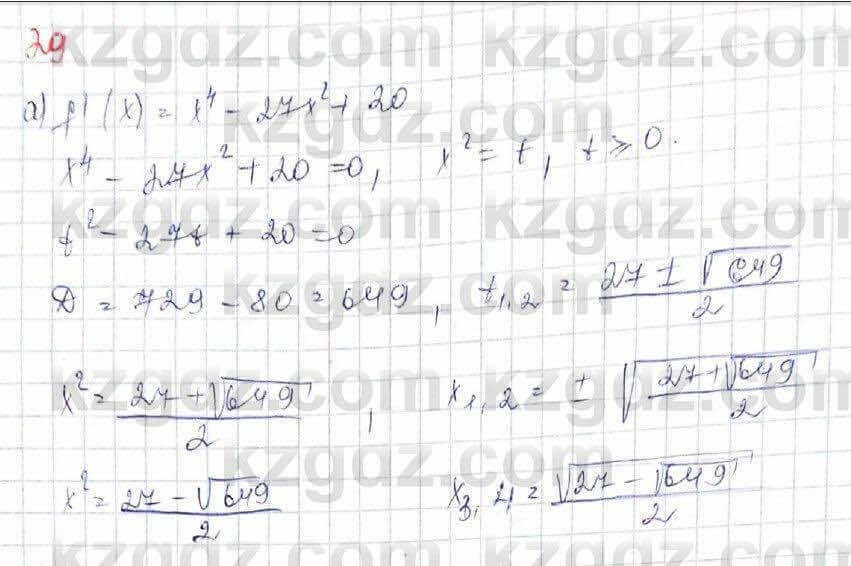 29
а) f'(x) = x⁴ - 27x² + 20
x⁴ - 27x² + 20 = 0, x² = t, t ≥ 0.
t² - 27t + 20 = 0
D = 729 - 80 = 649, t₁,₂ = (27 ± √649)/2
x² = (27 + √649)/2, x₁,₂ = ± √((27 + √649)/2)
x² = (27 - √649)/2 x₃,₄ = √(27 - √649)/2
kzgdz.com